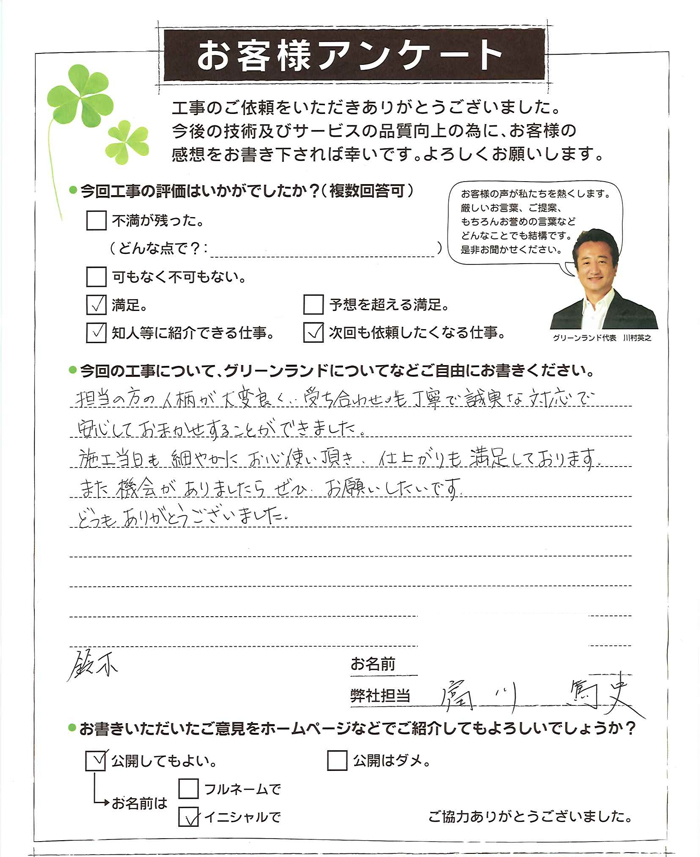 お客様アンケート
工事のご依頼をいただきありがとうございました。
今後の技術及びサービスの品質向上の為に、お客様の
感想をお書き下されば幸いです。よろしくお願いします。
今回工事の評価はいかがでしたか?(複数回答可)
不満が残った。
(どんな点で?: )
可もなく不可もない。
満足。 予想を超える満足。
知人等に紹介できる仕事。 次回も依頼したくなる仕事。
お客様の声が私たちを熱くします。
厳しいお言葉、ご提案、
もちろんお誉めの言葉など
どんなことでも結構です。
是非お聞かせください。
グリーンランド代表 川村英之
今回の工事について、グリーンランドについてなどご自由にお書きください。
担当の方の人柄が大変良く、受ち合わせも丁寧で誠実な対応で
安心しておまかせすることができました。
施工当日も細やかにお心使い頂き、仕上がりも満足しております。
また機会がありましたらぜひお願いしたいです。
どうもありがとうございました。
鈴木
お名前
弊社担当 宮川 篤史
お書きいただいたご意見をホームページなどでご紹介してもよろしいでしょうか?
公開してもよい。 公開はダメ。
お名前は
フルネームで
イニシャルで
ご協力ありがとうございました。